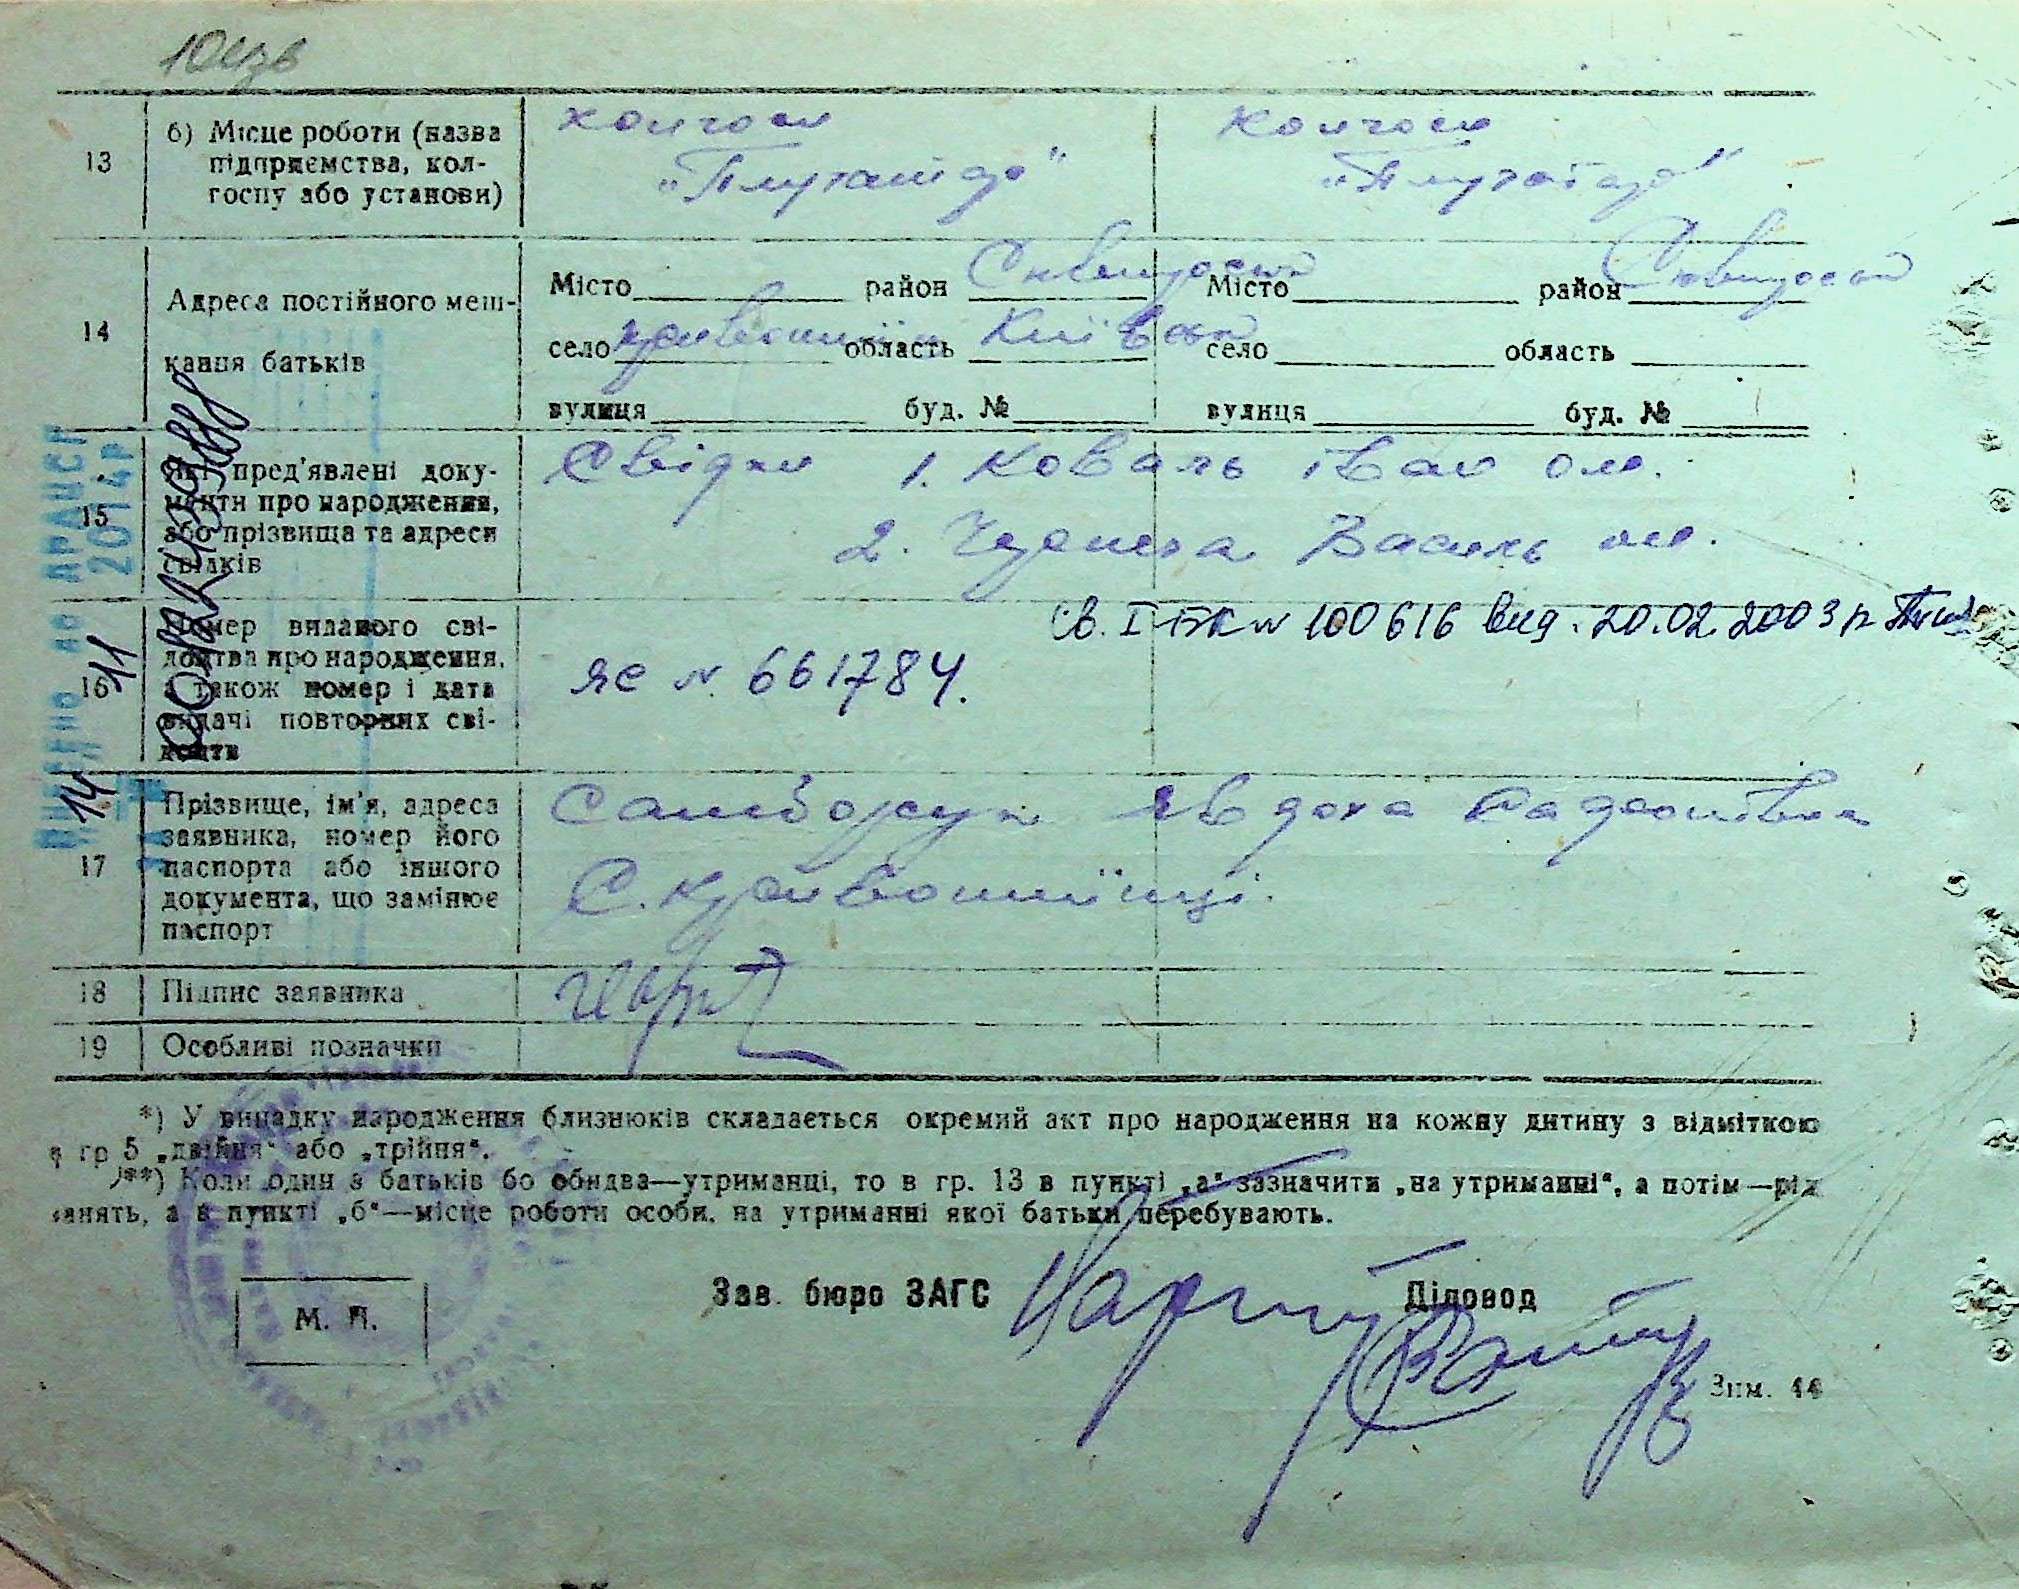 13
б) Місце роботи (назва
підприємства, кол-
госпу або установи)
колгосп
колгосп
14
Адреса постійного меш-
кання батьків
Місто район Сквирський
село область Київськ
вулиця буд. №
Місто район Сквирськ
село область
вулиця буд. №
15
Які пред'явлені доку-
менти про народження,
або прізвища та адреси
свідків
Свідки 1. Коваль Іван
2. Василь
16
Номер виданого сві-
доцтва про народження,
а також номер і дата
видачі повторних сві-
доцтв
Св. І БК № 100616 вид. 20.02.2003 р
ЯС № 661784.
17
Прізвище, ім'я, адреса
заявника, номер його
паспорта або іншого
документа, що замінює
паспорт
Самборук Явдоха
С. Кривошиїнці.
18
Підпис заявника
19
Особливі позначки
*) У випадку народження близнюків складається окремий акт про народження на кожну дитину з відміткою
в гр 5 „двійня“ або „трійня“.
**) Коли один з батьків бо обидва—утриманці, то в гр. 13 в пункті „а“ зазначити „на утриманні“, а потім—рід
занять, а в пункті „б“—місце роботи особи, на утриманні якої батьки перебувають.
М. П.
Зав. бюро ЗАГС
Діловод
Зим. 44
2014р
11
14